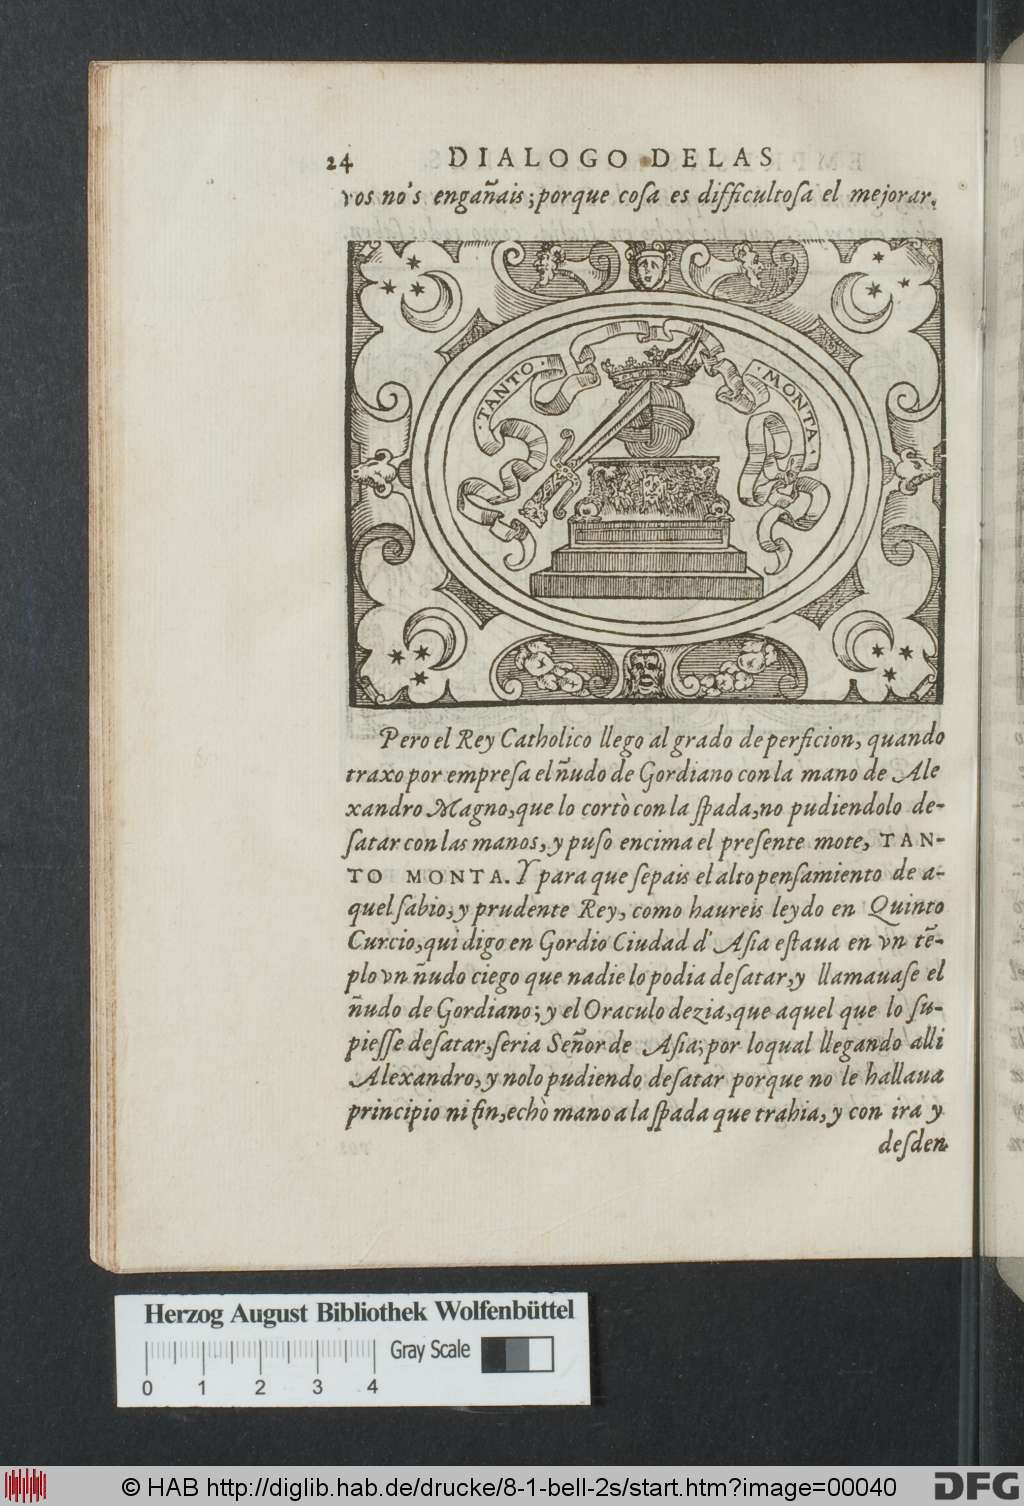 24 DIALOGO DE LAS
vos no's engañais; porque coſa es difficultoſa el mejorar.
·TANTO·
·MONTA·
Pero el Rey Catholico llego al grado de perficion, quando
traxo por empreſa el ñudo de Gordiano con la mano de Ale
xandro Magno, que lo cortò con la ſpada, no pudiendolo de-
ſatar con las manos, y puſo encima el preſente mote, TAN-
TO MONTA. Y para que ſepais el alto penſamiento de a-
quel ſabio, y prudente Rey, como haureis leydo en Quinto
Curcio, qui digo en Gordio Ciudad d' Aſia eſtaua en vn tẽ-
plo vn ñudo ciego que nadie lo podia deſatar, y llamauaſe el
ñudo de Gordiano; y el Oraculo dezia, que aquel que lo ſu-
pieſſe deſatar, ſeria Señor de Aſia; por loqual llegando alli
Alexandro, y nolo pudiendo deſatar porque no le hallaua
principio ni fin, echò mano a la ſpada que trahia, y con ira y
deſden
Herzog August Bibliothek Wolfenbüttel
Gray Scale
0 1 2 3 4
© HAB http://diglib.hab.de/drucke/8-1-bell-2s/start.htm?image=00040
DFG